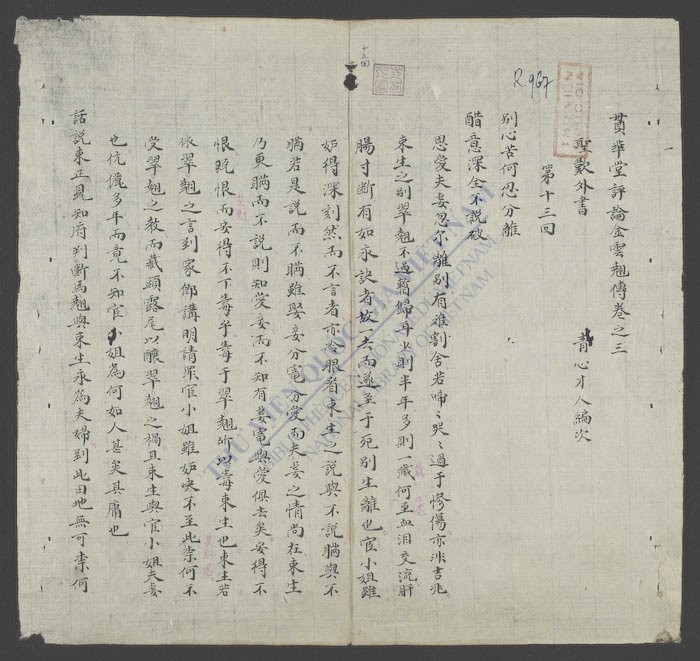 貫華堂評論金雲翹傳卷之三
聖歎外書
青心才人編次
第十三回
別心苦何忍分離
醋意深全不說破
恩愛夫妻忽尔離別有难割舍若啼〻哭〻過于慘傷亦非吉兆
束生之別翠翹不過暫歸耳少則半年多則一載何至血泪交流肝
腸寸断有如永訣者故一去而遂至于死別生離也宦小姐雖
妬得深刻然而不言者亦冷眼看束生之說與不說瞞與不
瞞若是說而不瞞雖娶妾分寵分愛而夫妻之情尚在束生
乃更瞞而不說則知愛妾而不知有妻寵與愛俱去矣安得不
恨既恨而安得不下毒乎毒于翠翹所以毒束生也束生若
依翠翹之言到家卽講明請罪宦小姐雖妬央不至此柰何不
受翠翹之教而藏頭露尾以釀翠翹之禍且束生與宦小姐夫妻
也伉儷多年而竟不知宦小姐為何如人甚矣其庸也
話說束正見知府判斷馬翹與束生永為夫婦到此田地無可柰何
十三回
R.967
THƯ VIỆN QUỐC GIA VIỆT NAM
BIBLIOTHÈQUE NATIONALE DU VIETNAM
NATIONAL LIBRARY OF VIETNAM